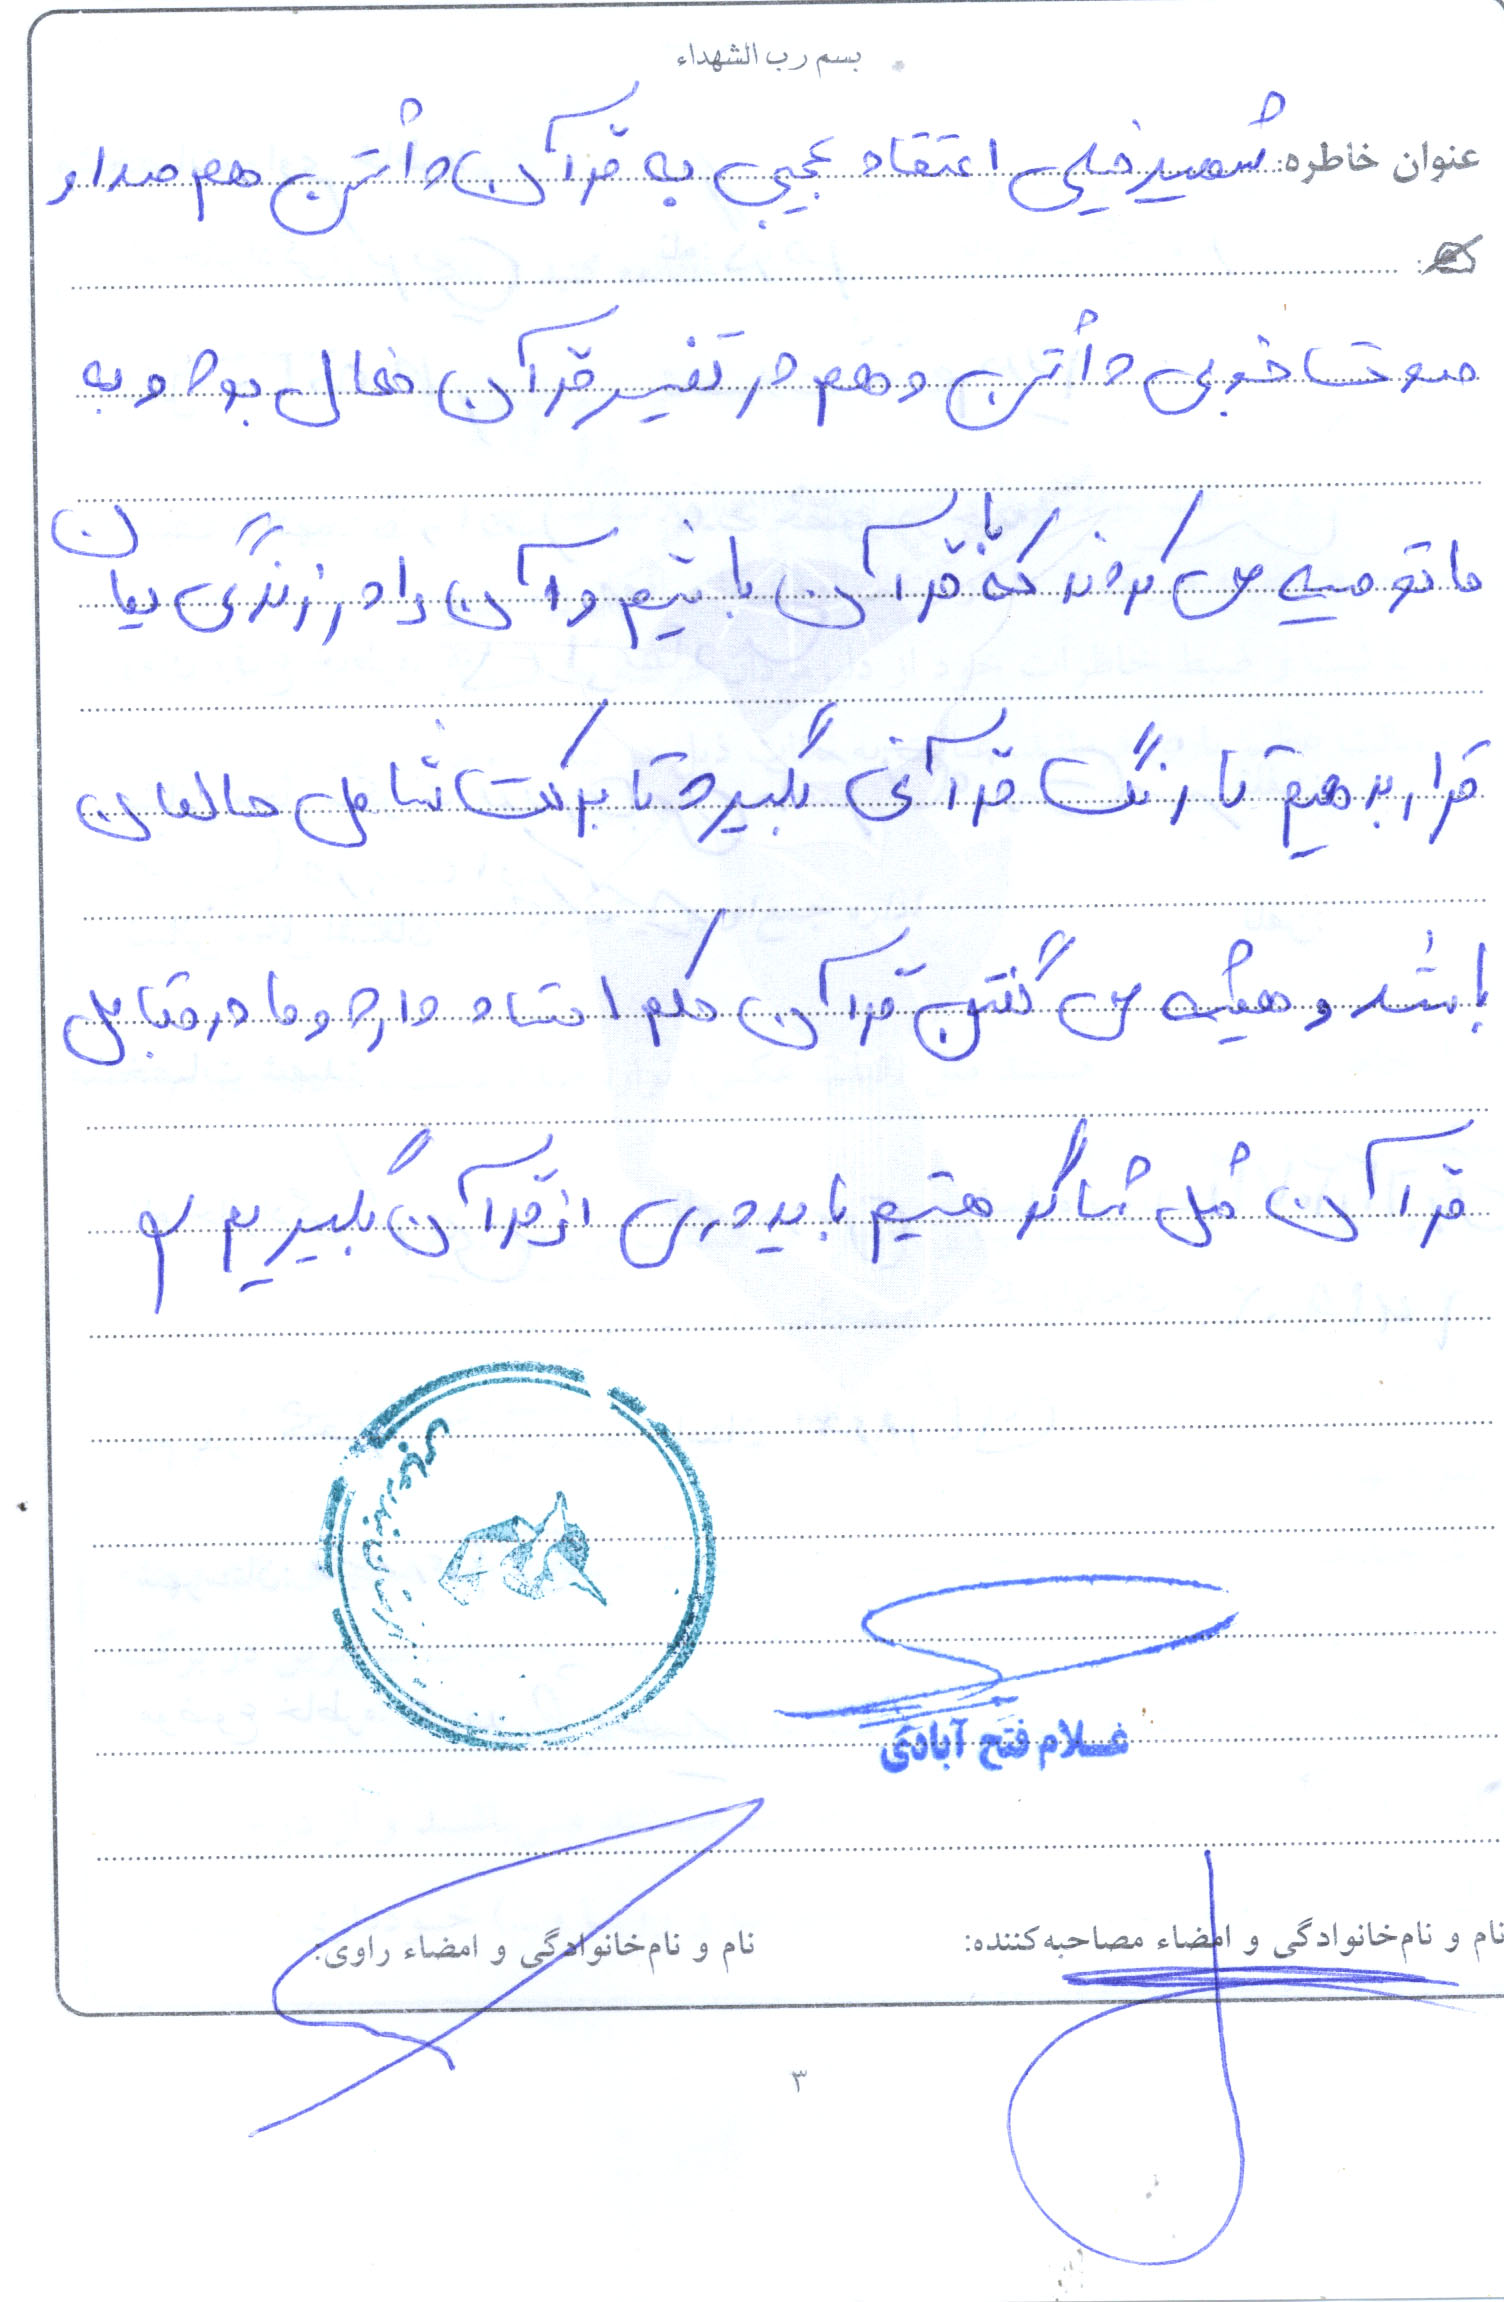 بسم رب الشهداء
عنوان خاطره: شهید خیلی اعتقاد عجیبی به قرآن داشتن هم صدا و
صوت خوبی داشتن و هم در تفسیر قرآن فعال بود و به
ما توصیه می کردند که با قرآن باشیم و آن را در زندگی یمان
قرار بدهیم تا رنگ قرآنی بگیرد تا برکت شامل حالمان
باشد و همیشه می گفتن قرآن حکم استاد دارد و ما در مقابل
قرآن مثل شاگرد هستیم باید درس از قرآن بگیریم
غلام فتح آبادی
نام و نام‌خانوادگی و امضاء مصاحبه‌کننده:
نام و نام‌خانوادگی و امضاء راوی:
۳